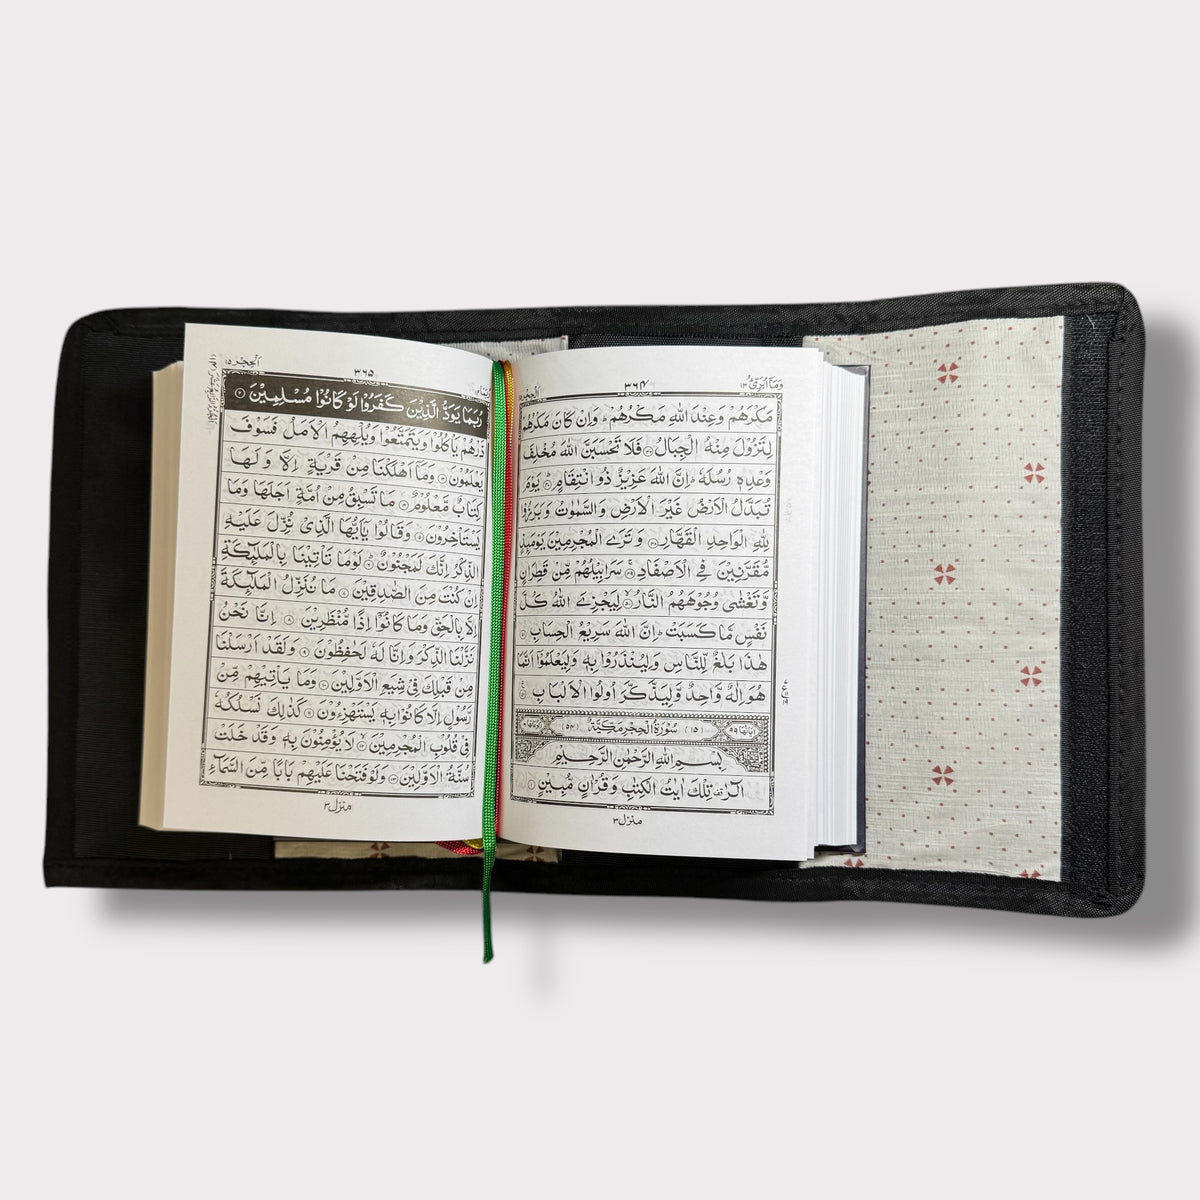 وَمَآ اُبَرِّئُ ١٣
٣٦٤
مَكْرَهُمْ وَعِنْدَ اللّٰهِ مَكْرُهُمْ ؕ وَاِنْ كَانَ مَكْرُهُمْ
لِتَزُوْلَ مِنْهُ الْجِبَالُ ﴿٤٦﴾ فَلَا تَحْسَبَنَّ اللّٰهَ مُخْلِفَ
وَعْدِهٖ رُسُلَهٗ ؕ اِنَّ اللّٰهَ عَزِيْزٌ ذُو انْتِقَامٍ ﴿٤٧﴾ يَوْمَ
تُبَدَّلُ الْاَرْضُ غَيْرَ الْاَرْضِ وَالسَّمٰوٰتُ وَبَرَزُوْا
لِلّٰهِ الْوَاحِدِ الْقَهَّارِ ﴿٤٨﴾ وَتَرَى الْمُجْرِمِيْنَ يَوْمَىِٕذٍ
مُّقَرَّنِيْنَ فِى الْاَصْفَادِ ﴿٤٩﴾ سَرَابِيْلُهُمْ مِّنْ قَطِرَانٍ
وَّتَغْشٰى وُجُوْهَهُمُ النَّارُ ﴿٥٠﴾ لِيَجْزِىَ اللّٰهُ كُلَّ
نَفْسٍ مَّا كَسَبَتْ ؕ اِنَّ اللّٰهَ سَرِيْعُ الْحِسَابِ ﴿٥١﴾
هٰذَا بَلٰغٌ لِّلنَّاسِ وَلِيُنْذَرُوْا بِهٖ وَلِيَعْلَمُوْٓا اَنَّمَا
هُوَ اِلٰهٌ وَّاحِدٌ وَّلِيَذَّكَّرَ اُولُوا الْاَلْبَابِ ﴿٥٢﴾
اٰيَاتُهَا ٩٩ (١٥) سُوْرَةُ الْحِجْرِ مَكِّيَّةٌ (٥٤) رُكُوْعَاتُهَا ٦
بِسْمِ اللّٰهِ الرَّحْمٰنِ الرَّحِيْمِ
الٓرٰ تِلْكَ اٰيٰتُ الْكِتٰبِ وَقُرْاٰنٍ مُّبِيْنٍ ﴿١﴾
منزل ٣
اَلْحِجْر ١٥
٣٦٥
رُبَمَا يَوَدُّ الَّذِيْنَ كَفَرُوْا لَوْ كَانُوْا مُسْلِمِيْنَ ﴿٢﴾
ذَرْهُمْ يَاْكُلُوْا وَيَتَمَتَّعُوْا وَيُلْهِهِمُ الْاَمَلُ فَسَوْفَ
يَعْلَمُوْنَ ﴿٣﴾ وَمَآ اَهْلَكْنَا مِنْ قَرْيَةٍ اِلَّا وَلَهَا
كِتَابٌ مَّعْلُوْمٌ ﴿٤﴾ مَا تَسْبِقُ مِنْ اُمَّةٍ اَجَلَهَا وَمَا
يَسْتَاْخِرُوْنَ ﴿٥﴾ وَقَالُوْا يٰٓاَيُّهَا الَّذِىْ نُزِّلَ عَلَيْهِ
الذِّكْرُ اِنَّكَ لَمَجْنُوْنٌ ﴿٦﴾ لَوْ مَا تَاْتِيْنَا بِالْمَلٰٓىِٕكَةِ
اِنْ كُنْتَ مِنَ الصّٰدِقِيْنَ ﴿٧﴾ مَا نُنَزِّلُ الْمَلٰٓىِٕكَةَ
اِلَّا بِالْحَقِّ وَمَا كَانُوْٓا اِذًا مُّنْظَرِيْنَ ﴿٨﴾ اِنَّا نَحْنُ
نَزَّلْنَا الذِّكْرَ وَاِنَّا لَهٗ لَحٰفِظُوْنَ ﴿٩﴾ وَلَقَدْ اَرْسَلْنَا
مِنْ قَبْلِكَ فِىْ شِيَعِ الْاَوَّلِيْنَ ﴿١٠﴾ وَمَا يَاْتِيْهِمْ مِّنْ
رَّسُوْلٍ اِلَّا كَانُوْا بِهٖ يَسْتَهْزِءُوْنَ ﴿١١﴾ كَذٰلِكَ نَسْلُكُهٗ
فِىْ قُلُوْبِ الْمُجْرِمِيْنَ ﴿١٢﴾ لَا يُؤْمِنُوْنَ بِهٖ وَقَدْ خَلَتْ
سُنَّةُ الْاَوَّلِيْنَ ﴿١٣﴾ وَلَوْ فَتَحْنَا عَلَيْهِمْ بَابًا مِّنَ السَّمَآءِ
منزل ٣